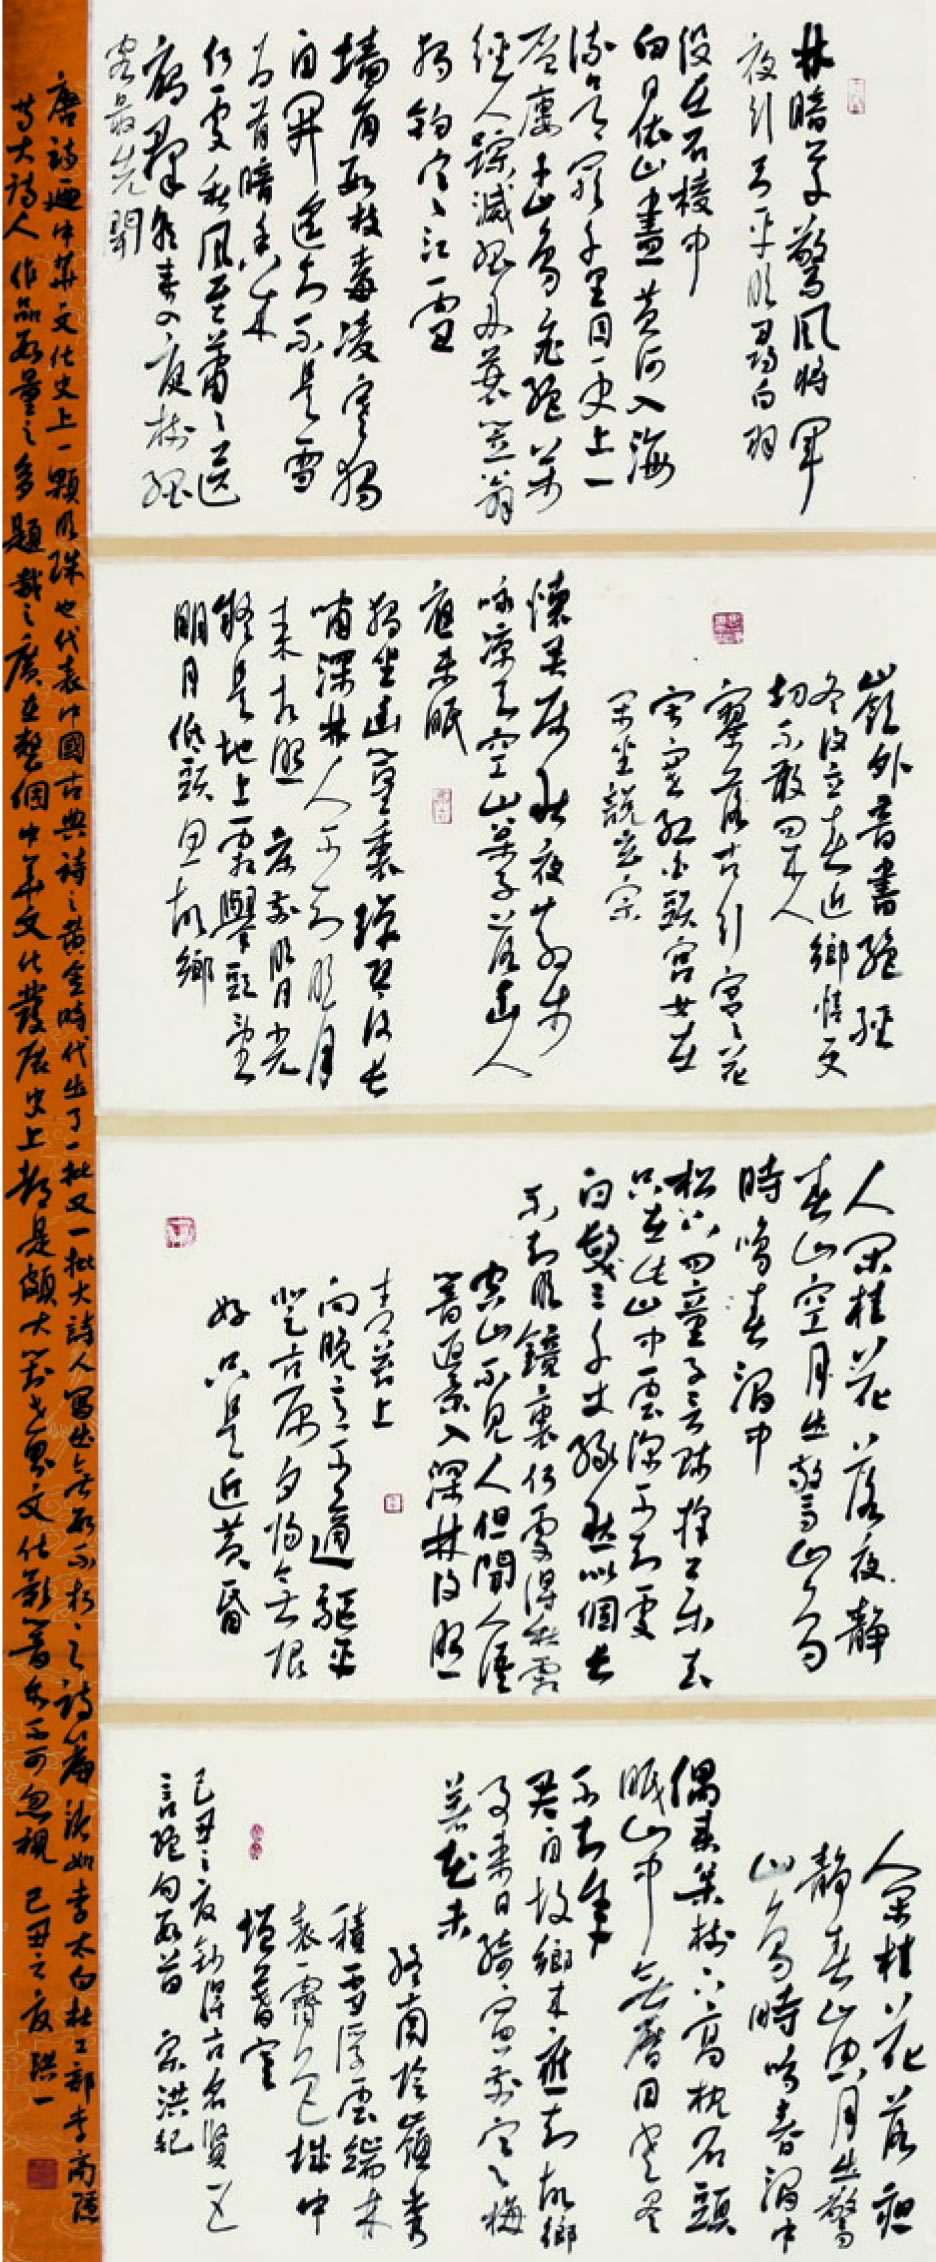 林暗草驚風將軍
夜引弓平明尋白羽
沒在石棱中
白日依山盡黃河入海
流欲窮千里目更上一
層樓千山鳥飛絕萬
徑人蹤滅孤舟蓑笠翁
獨釣寒江雪
牆角數枝梅凌寒獨
自開遙知不是雪
為有暗香來
何處秋風至蕭蕭送
雁群朝來入庭樹孤
客最先聞
嶺外音書絕經
冬復立春近鄉情更
切不敢問來人
寥落古行宮宮花
寂寞紅白頭宮女在
閑坐說玄宗
懷君屬秋夜散步
詠涼天空山松子落幽人
應未眠
獨坐幽篁裏彈琴復長
嘯深林人不知明月
來相照床前明月光
疑是地上霜舉頭望
明月低頭思故鄉
人閑桂花落夜靜
春山空月出驚山鳥
時鳴春澗中
松下問童子言師採藥去
只在此山中雲深不知處
白髮三千丈緣愁似個長
不知明鏡裏何處得秋霜
空山不見人但聞人語
響返景入深林復照
青苔上
向晚意不適驅車
登古原夕陽無限
好只是近黃昏
人閑桂花落夜
靜春山空月出驚
山鳥時鳴春澗中
偶來松樹下高枕石頭
眠山中無曆日寒盡
不知年
君自故鄉來應知故鄉
事來日綺窗前寒梅
著花未
終南陰嶺秀
積雪浮雲端林
表明霽色城中
增暮寒
己丑之夏鈔得古名賢五
言絕句數首 宗洪紀
唐詩迺中華文化史上一顆明珠也代表中國古典詩之黃金時代出了一批又一批大詩人寫出無數不朽之詩篇諸如李太白杜工部李商隱
等大詩人作品數量之多題裁之廣在整個中華文化發展史上都是頗大對世界文化影響亦不可忽視 己丑之夏 洪一